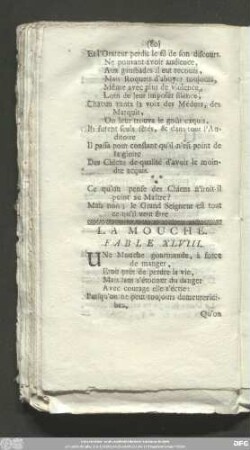 (80)
Et l'Orateur perdit le fil de son discours.
Ne pouvant avoir audience,
Aux gourmades il eut recours,
Mais Roquets d'aboyer toujours,
Même avec plus de violence,
Loin de leur imposer silence,
Chacun vanta la voix des Médors, des
Marquis,
On leur trouva le goût exquis,
Ils furent seuls fêtés, & dans tout l'Au-
ditoire
Il passa pour constant qu'il n'est point de
légère
Des Chiens de qualité d'avoir le moin-
dre acquis.
Ce qu'on pense des Chiens n'iroit-il
point au Maître?
Mais non: le Grand Seigneur est tout
ce qu'il veut être
LA MOUCHE.
FABLE XLVIII.
UNe Mouche gourmande, à force
de manger,
Etoit près de perdre la vie,
Mais loin s'étonner du danger
Avec courage elle s'écrie:
Puisqu'on ne peut toujours demeurer
Qu'on